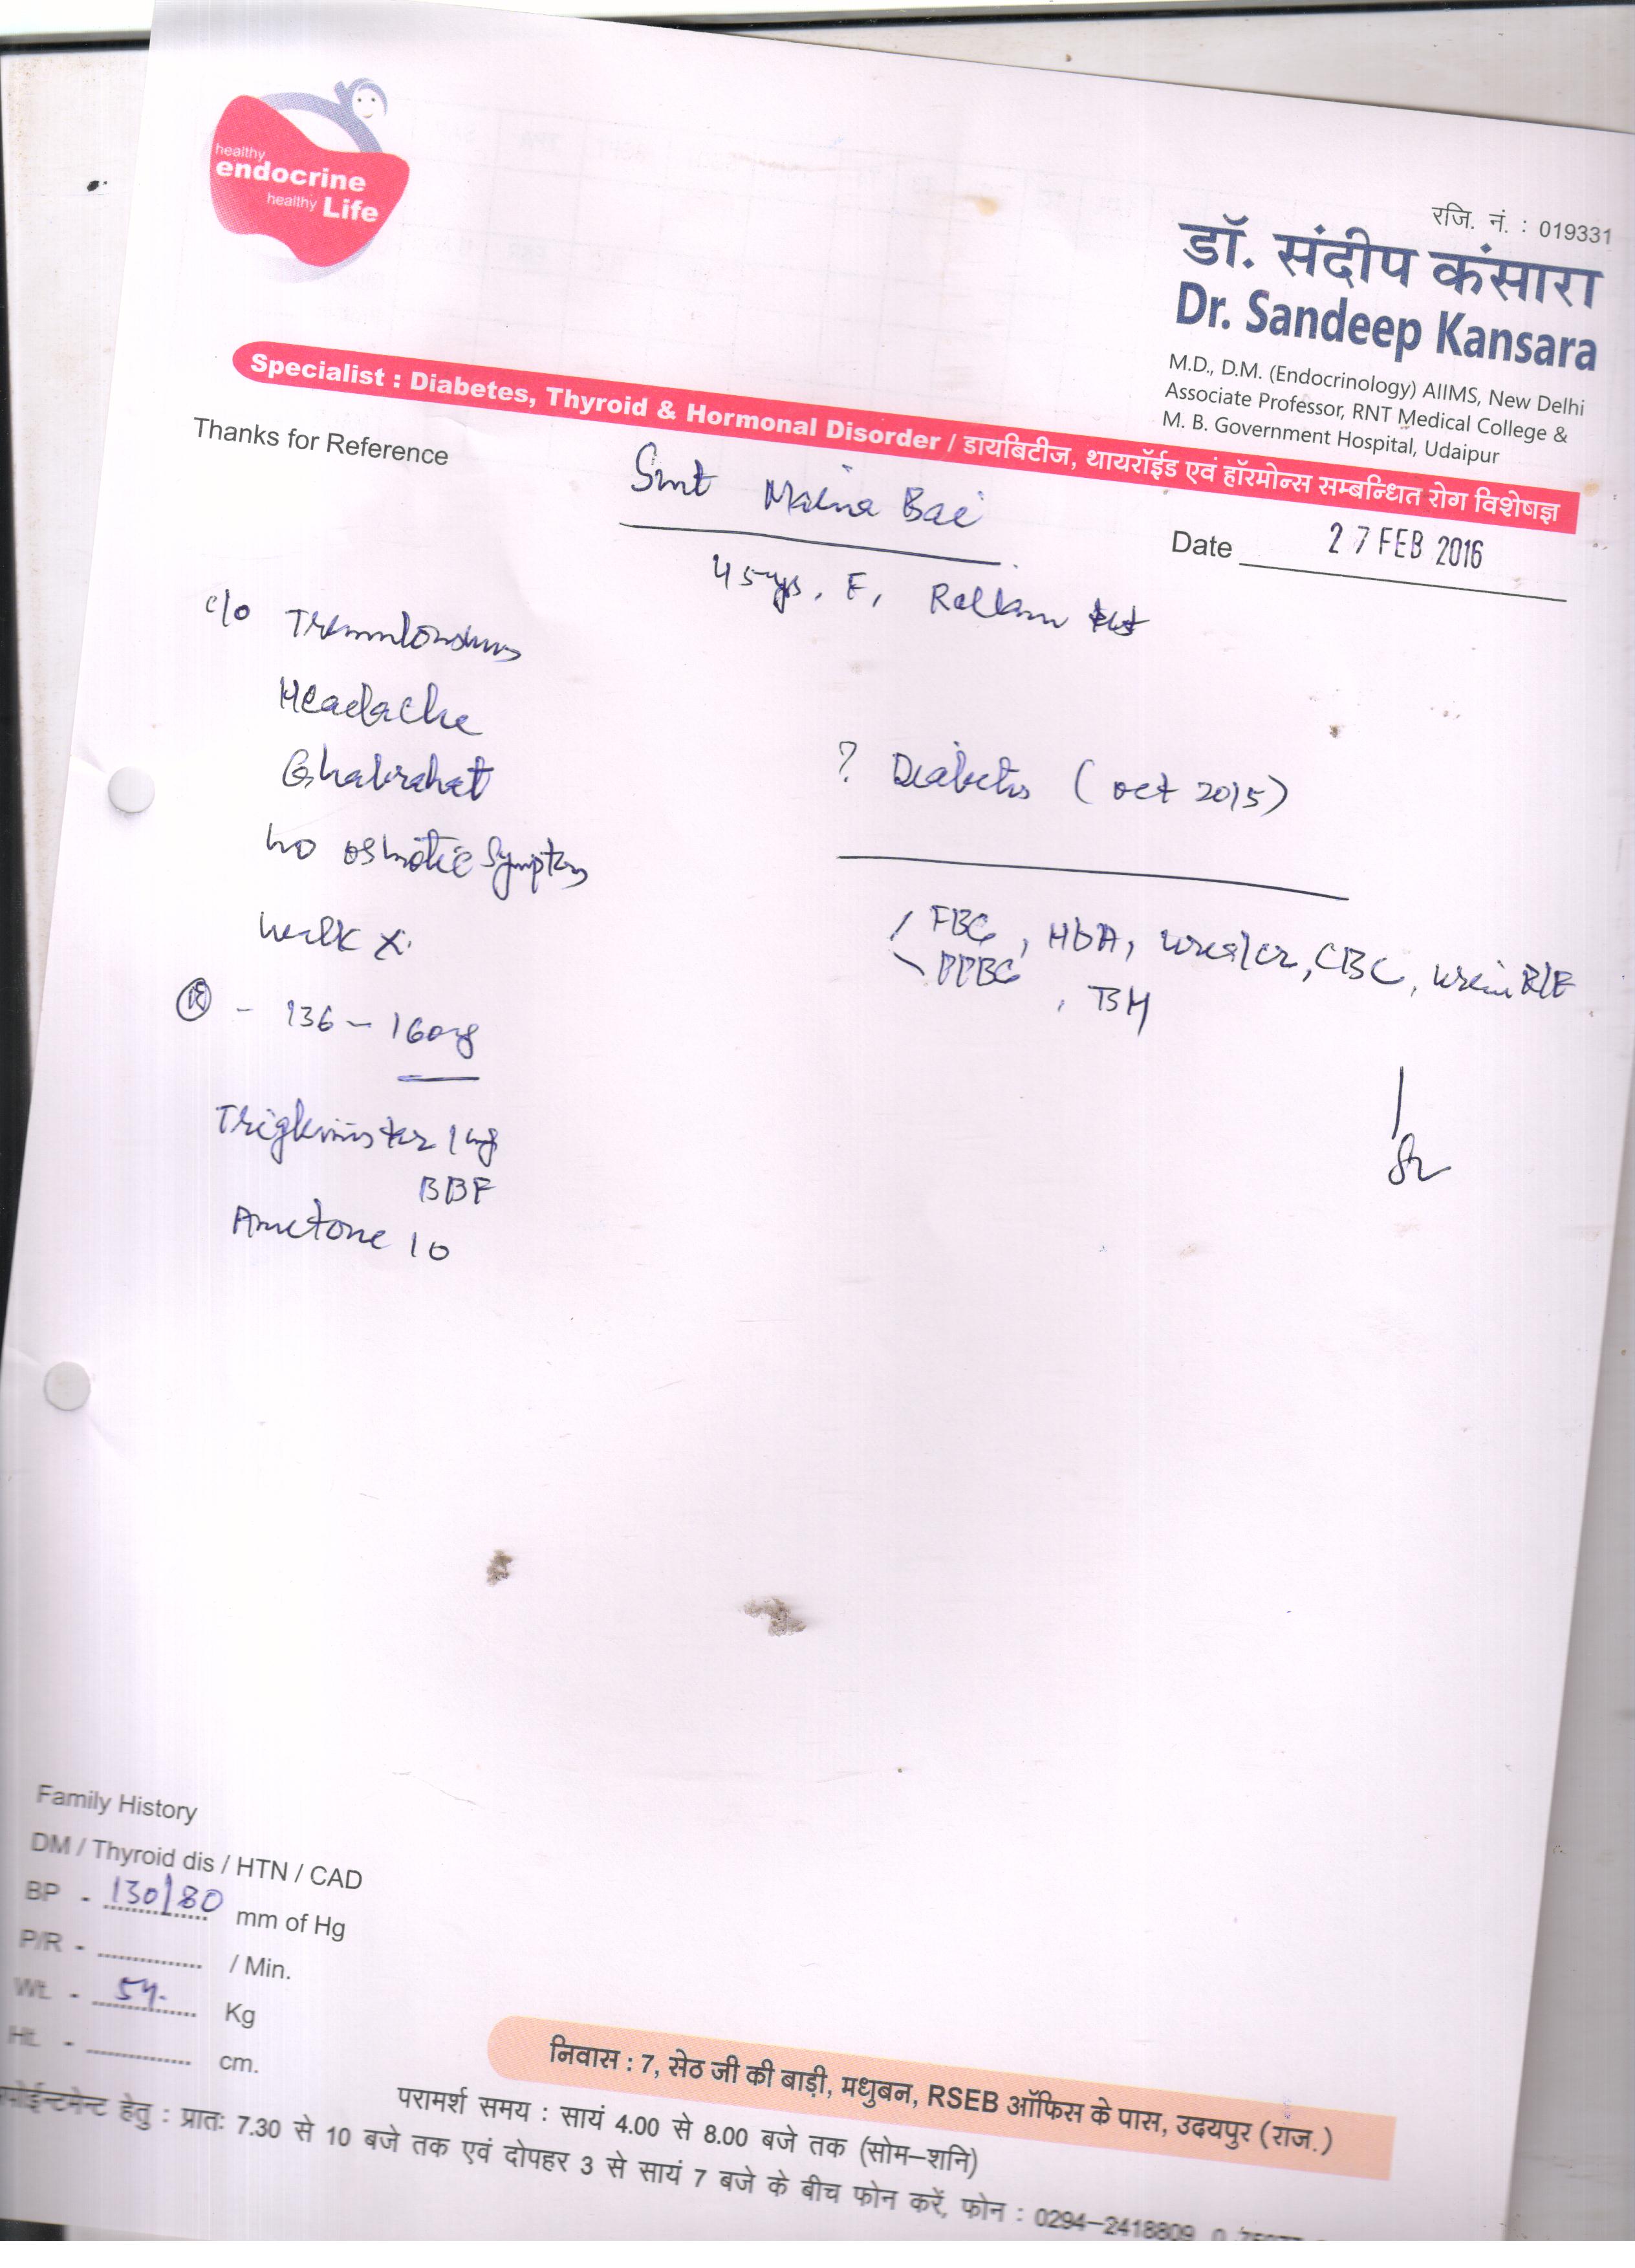 healthy
endocrine
healthy Life
रजि. नं. : 019331
डॉ. संदीप कंसारा
Dr. Sandeep Kansara
M.D., D.M. (Endocrinology) AIIMS, New Delhi
Associate Professor, RNT Medical College &
M. B. Government Hospital, Udaipur
Specialist : Diabetes, Thyroid & Hormonal Disorder / डायबिटीज, थायरॉईड एवं हॉरमोन्स सम्बन्धित रोग विशेषज्ञ
Thanks for Reference
Smt Maina Bai
Date 27 FEB 2016
45 yrs, F,
c/o
Headache
Ghabrahat
no osmotic symptoms
walk x
? Diabetes (Oct 2015)
FBG, HbA, urea/cr, CBC, urein R/E
PPBG, TSH
R - 136 - 160mg
1mg
BBF
Ametone 10
Family History
DM / Thyroid dis / HTN / CAD
BP - 130/80 mm of Hg
P/R - / Min.
Wt. - 54 Kg
Ht. - cm.
निवास : 7, सेठ जी की बाड़ी, मधुबन, RSEB ऑफिस के पास, उदयपुर (राज.)
परामर्श समय : सायं 4.00 से 8.00 बजे तक (सोम–शनि)
हेतु : प्रातः 7.30 से 10 बजे तक एवं दोपहर 3 से सायं 7 बजे के बीच फोन करें, फोन : 0294-2418809